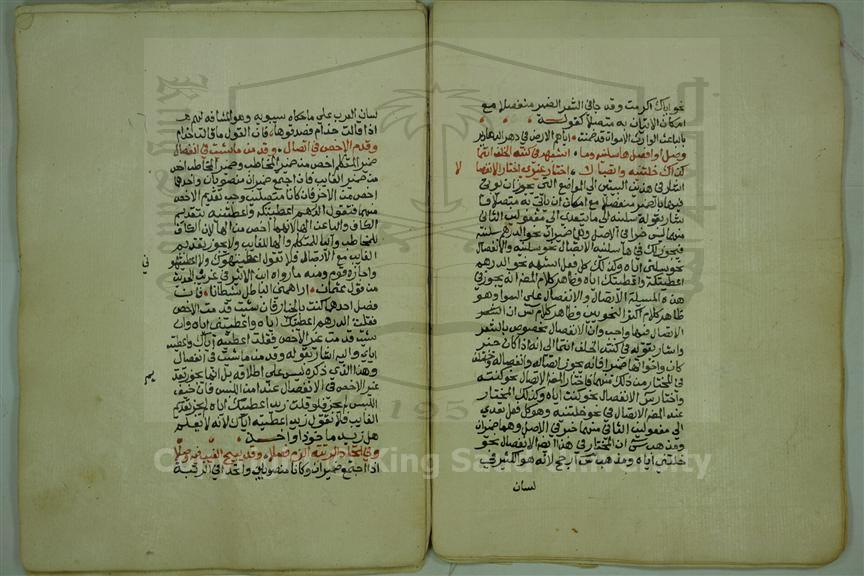 نحو اياك اكرمت وقد جاء في الشعر الضمير منفصلا مع
امكان الاتيان به متصلا كقوله
بالباعث الوارث الاموات قد ضمنت اياهم الارض في دهر الدهارير
وصل او افصل هاء سلنيه وما اشبهه في كنته الخلف انتما
كذاك خلتنيه واتصالا اختار غيري اختار الانفصالا
اشار في هذين البيتين الى المواضع التي يجوز ان يؤتى
فيها بالضمير منفصلا مع امكان ان يأتي به متصلا فا
شار بقوله سلنيه الى ما يتعدى الى مفعولين الثاني
منهما ليس خبرا في الاصل وهما ضميران نحو الدرهم سلنيه
فيجوز لك في هاء سلنيه الاتصال نحو سلنيه والانفصال
نحو سلني اياه وكذلك كل فعل اشبهه نحو الدرهم
اعطيتكه واعطيتك اياه وظاهر كلام المص انه يجوز في
هذه المسئلة الاتصال والانفصال على السوا وهو
ظاهر كلام اكثر النحويين وظاهر كلام س ان الاتصال
فيها واجب وان الانفصال مخصوص بالشعر
واشار بقوله في كنته الخلف انتما الى انه اذا كان خبر
كان واخواتها ضميرا فانه يجوز اتصاله وانفصاله واختلف
في المختار من ذلك منهما فاختار المص الاتصال نحو كنته
واختار س الانفصال نحو كنت اياه وكذلك المختار
عند المص الاتصال في نحو خلتنيه وهو كل فعل تعدى
الى مفعولين الثاني منهما خبر في الاصل وهما ضميران
ومذهب س ان المختار في هذا ايضا الانفصال نحو
خلتني اياه ومذهب س ارجح لانه هو الكثير في
لسان
لسان العرب على ما حكاه سيبويه وهو المشافه لهم
اذا قالت حذام فصدقوها فان القول ما قالت حذام
وقدم الاخص في اتصال وقدمن ما شئت في انفصال
ضمير المتكلم اخص من ضمير المخاطب وضمير المخاطب اخص
من ضمير الغايب فان اجتمع ضميران منصوبان واحدهما
اخص من الاخر فان كانا متصلين وجب تقديم الاخص
منهما فتقول الدرهم اعطيتكه واعطيتنيه بتقديم
الكاف والياء على الهاء لانهما اخص من الهاء لان الكاف
للمخاطب والياء للمتكلم والهاء للغايب ولا يجوز تقديم
الغايب مع الاتصال فلا تقول اعطيتهوك ولا اعطيتهوني
واجازه قوم ومنه ما رواه ابن الاثير في غريب الحديث
من قول عثمان اراهمني الباطل شيطانا فان
فصل احدهما كنت بالخيار فان شئت قدمت الاخص
فقلت الدرهم اعطيتك اياه واعطيتني اياه وان
شئت قدمت غير الاخص فقلت اعطيته اياك واعطيته
اياي واليه اشار بقوله وقدمن ما شئت في انفصال
وهذا الذي ذكره ليس على اطلاقه بل انما يجوز تقديم
غير الاخص في الانفصال عند امن اللبس فان خيف
اللبس لم يجز فلو قلت زيد اعطيتك اياه لم يجز تقديم
الغايب فلا تقول زيد اعطيته اياك لانه لا يعلم
هل زيد ماخوذ او اخذ
وفي اتحاد الرتبة الزم فصلا وقد يبيح الغيب فيه وصلا
اذا اجتمع ضميران وكانا منصوبين واتحدا في الرتبة
Copyright © King Saud University
1957